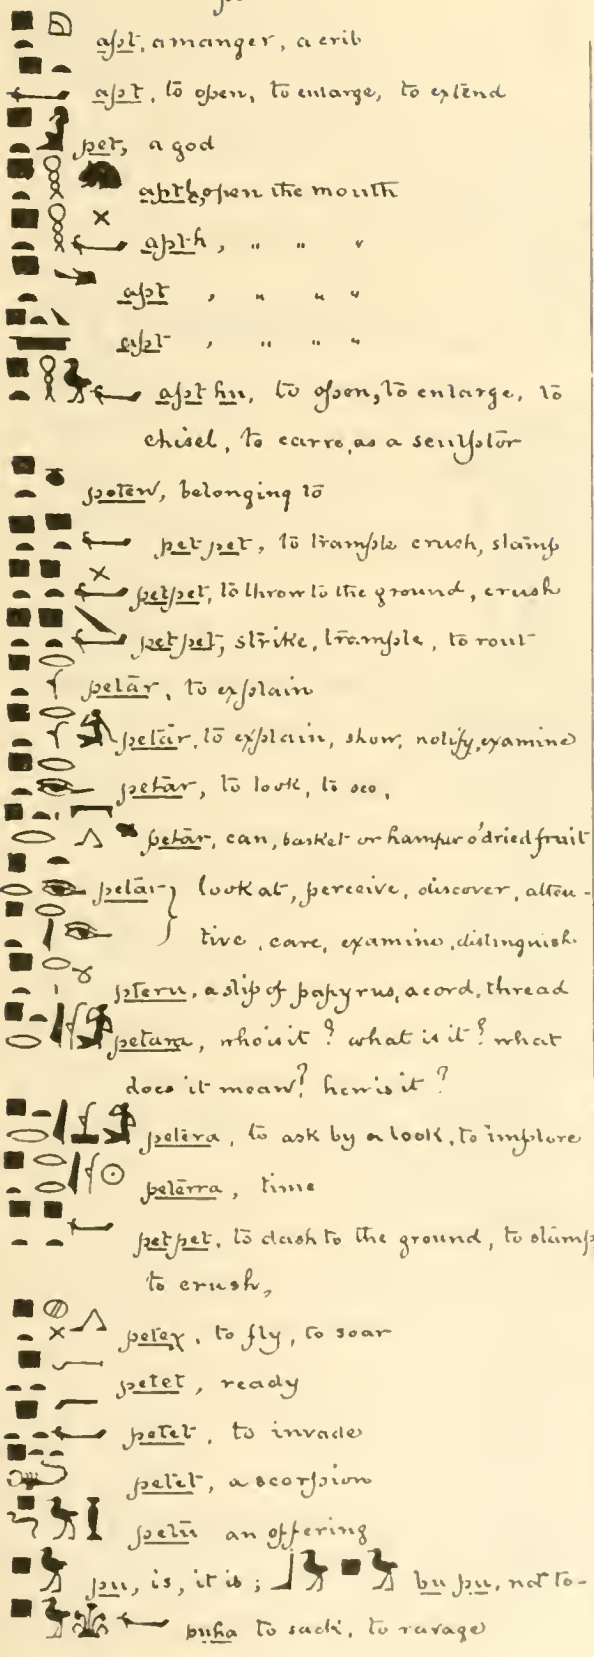 apt, a manger, a crib
apt, to open, to enlarge, to extend
pet, a god
apth, open the mouth
apt-h, " " "
apt , " " "
apt , " " "
apt hu, to open, to enlarge, to
chisel, to carve, as a sculptor
poten, belonging to
pet pet, to trample crush, stamp
petpet, to throw to the ground, crush
petpet, strike, trample, to rout
petār, to explain
petār, to explain, show, notify, examine
petār, to look, to see,
petār, can, basket or hamper o' dried fruit
petār } look at, perceive, discover, atten-
tive, care, examine, distinguish.
pteru, a slip of papyrus, a cord, thread
petara, who is it? what is it? what
does it mean? how is it?
petera, to ask by a look, to implore
peterra, time
petpet, to dash to the ground, to stamp
to crush,
petex, to fly, to soar
petet, ready
petet, to invade
petet, a scorpion
petū an offering
pu, is, it is; bu pu, not to-
puha to sack, to ravage